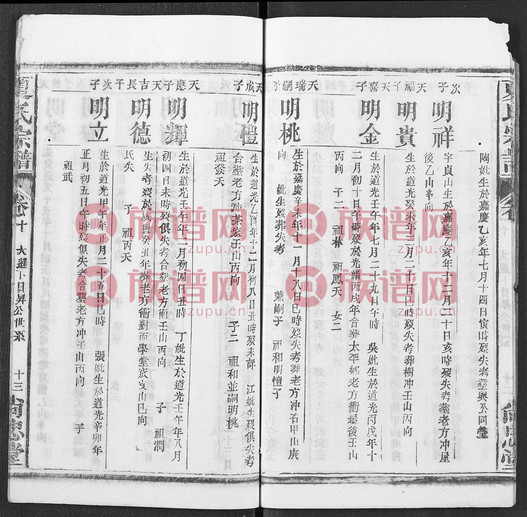 陶妣生於嘉慶乙亥年七月十四日寅時歿失考葬與夫同塋
次子
明祥
字貞山生於嘉慶乙亥年十二月二十日亥時歿失考葬老方冲屋
後乙山辛向
明貴
生於道光癸未年三月二十日巳時歿失考葬樹冲壬山丙向
天禧子
明金
生於道光壬午年七月二十九日午時
吳妣生於道光丙戌年十
二月初十日午時歿於光緒丙戌年
合葬太平鄉老方衝嶺後壬山
丙向
子二
祖林
祖鳳天
女二
天瑞嗣子
明桃
生於嘉慶辛未年十一月十八日巳時歿失考葬老方冲石甲山庚
向
妣生歿葬失考
葉嗣子
祖和明愷子
天成子
明愷
生於道光乙酉年十二月初八日丑時歿未詳
江妣生歿俱失考
合葬老方冲茶葉壬山丙向
子二
祖和並嗣明桃
祖發天
天應子
明輝
生於道光壬午年二月初四日丑時
丁妣生於道光壬午年八月
初四日未時歿俱失考合葬老方衝壬山丙向
子
祖潤
天吉長子
明德
生失考歿於咸豐癸丑年葬老方衝對面學堂亥山巳向
氏失
子
祖丙天
天亥子
明立
生於道光甲午年正月二十五日巳時
張妣生於道光辛卯年
正月初五日午時歿俱失考合葬老方衝壬山丙向
子
祖武
夏氏宗譜
卷十
大進下日昇公世系
十三
尚忠堂
族谱网
zupu.cn